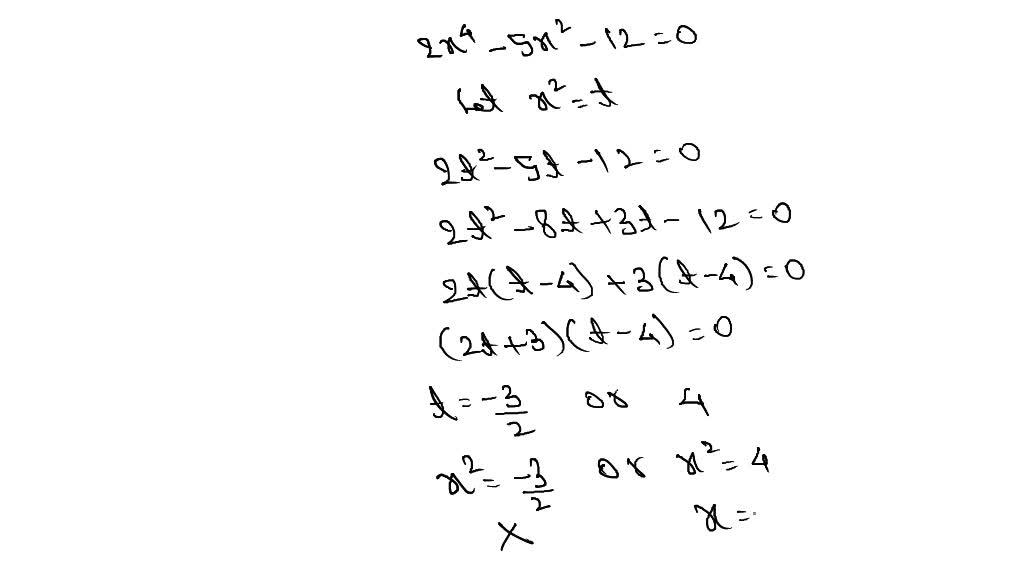 2x⁴ - 5x² - 12 = 0
Let x² = t
2t² - 5t - 12 = 0
2t² - 8t + 3t - 12 = 0
2t(t - 4) + 3(t - 4) = 0
(2t + 3)(t - 4) = 0
t = -3/2 or 4
x² = -3/2 or x² = 4
X x =